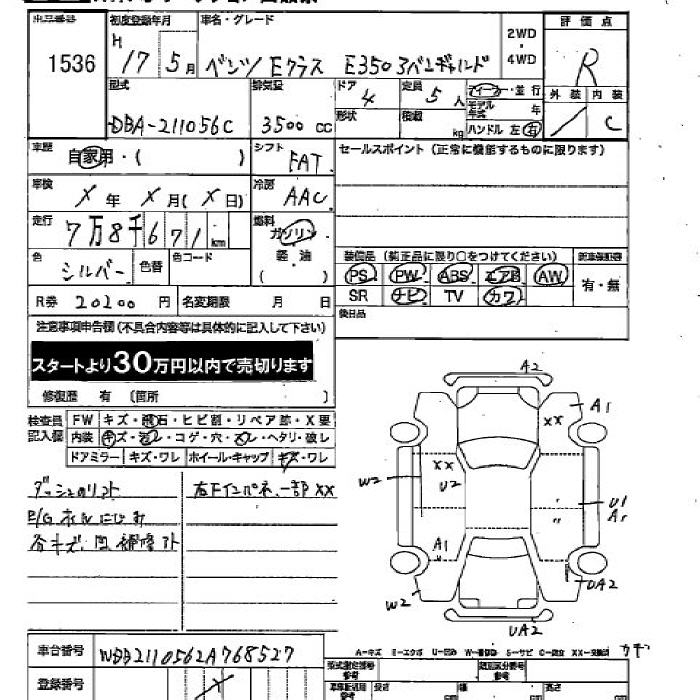 出品番号 初度登録年月 車名・グレード 評価点
1536 H17 5月 ベンツ Eクラス E350 アバンギャルド 2WD・4WD R
型式 排気量 ドア 定員 ディーラー・並行 外装 内装
DBA-211056C 3500cc 4 5人 モデル年式 年 / C
形状 積載 kg ハンドル 左 右
車歴 自家用・( ) シフト FAT セールスポイント (正常に機能するものに限ります)
車検 X年 X月 (X日) 冷房 AAC
走行 7万8千671km 燃料 ガソリン
色 シルバー 色替 色コード 軽・油 ( ) 装備品 (純正品に限り○をつけてください) 新車保証書
PS PW ABS エアB AW 有・無
R券 20200円 名変期限 月 日 SR ナビ TV カワ
注意事項申告欄 (不具合内容等は具体的に記入して下さい) 後日品
スタートより30万円以内で売切ります
修復歴 有 〔箇所 〕
検査員記入欄 FW キズ・飛石・ヒビ割・リペア跡・X要
内装 キズ・コゲ・穴・ヘタリ・破レ
ドアミラー キズ・ワレ ホイール・キャップ キズ・ワレ
ダッシュ 右Fインパネ、一部XX
E/G オイルにじみ
各キズ、凹、補修跡
A2
A1
XX
XX
W2
U2
U1
A1
A1
UA2
W2
UA2
車台番号 WDB2110562A768527 A-キズ E-エクボ U-凹み W-補修跡 S-サビ C-腐食 XX-交換済
登録番号 型式指定番号 参考 類別区分番号 参考
長さ 幅 高さ